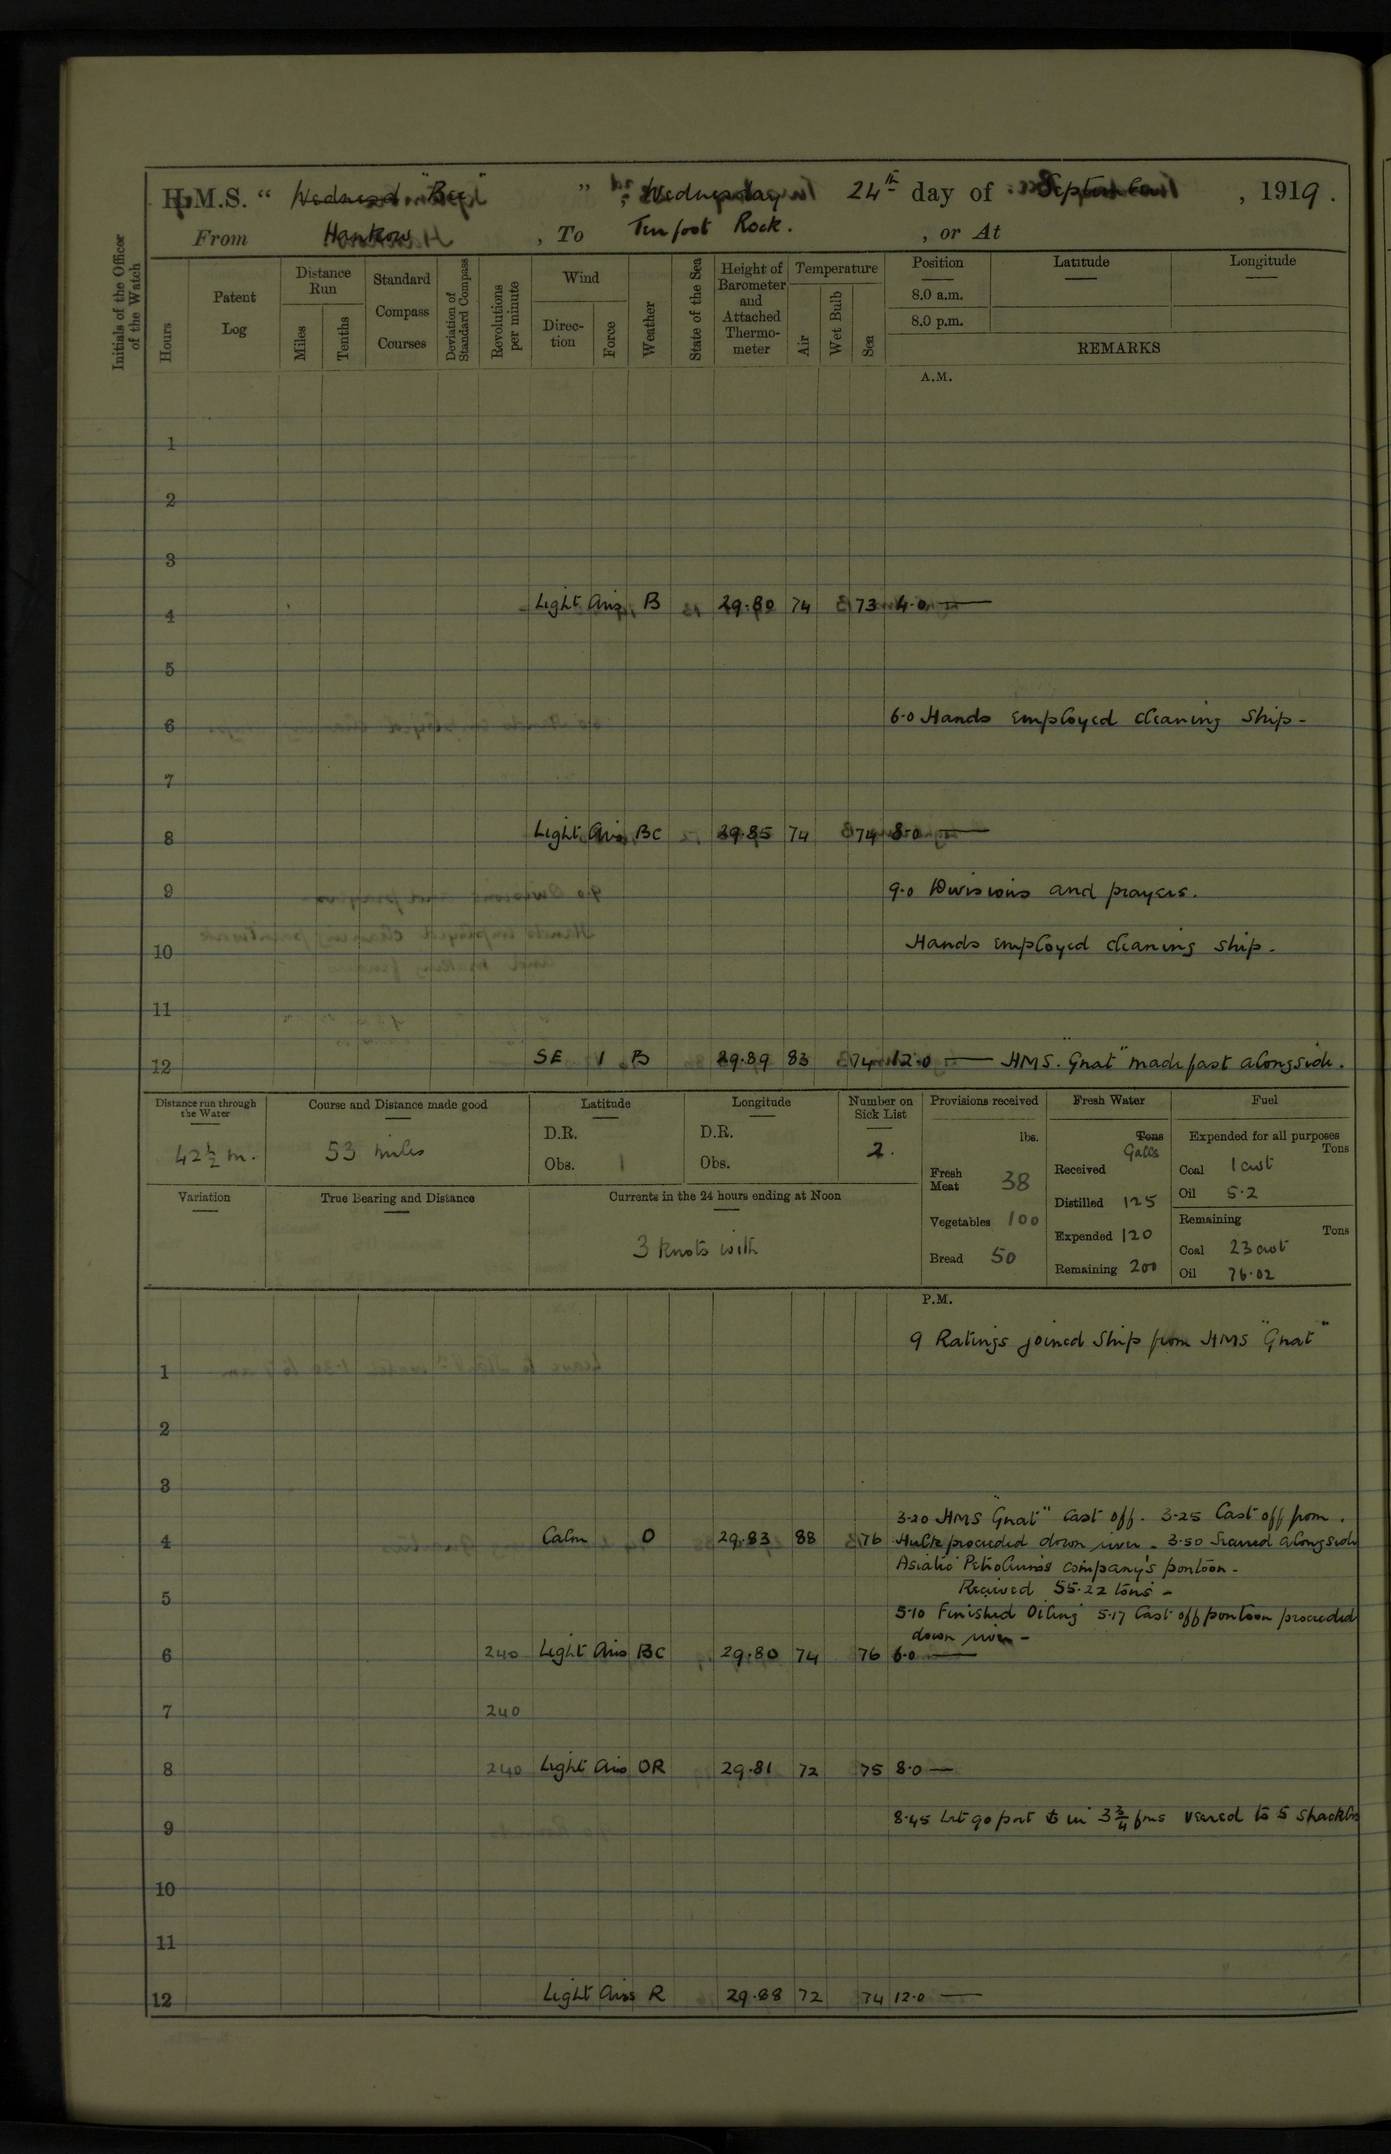 H.M.S. " Wednesd "Bee" ", Wednesday 24th day of September, 1919.
From Hankow, To Tenfoot Rock. , or At
Initials of the Officer of the Watch
Hours
Patent Log
Distance Run
Miles
Tenths
Standard Compass Courses
Deviation of Standard Compass
Revolutions per minute
Wind
Direction
Force
Weather
State of the Sea
Height of Barometer and Attached Thermometer
Temperature
Air
Wet Bulb
Sea
Position
Latitude
Longitude
8.0 a.m.
8.0 p.m.
REMARKS
A.M.
1
2
3
4 Light Airs B 29.80 74 73 4.0 —
5
6 6.0 Hands employed cleaning ship -
7
8 Light Airs BC 29.85 74 74 8.0 —
9 9.0 Divisions and prayers.
10 Hands employed cleaning ship -
11
12 SE 1 B 29.89 83 74 12.0 — HMS. "Gnat" made fast alongside.
Distance run through the Water
42½ m.
Course and Distance made good
53 miles
Latitude
D.R.
Obs.
Longitude
D.R.
Obs.
Number on Sick List
2.
Provisions received
lbs.
Fresh Meat 38
Vegetables 100
Bread 50
Fresh Water
Tons
Galls
Received
Distilled 125
Expended 120
Remaining 200
Fuel
Expended for all purposes
Tons
Coal 1 cwt
Oil 5.2
Remaining
Tons
Coal 23 cwt
Oil 76.02
Variation
True Bearing and Distance
Currents in the 24 hours ending at Noon
3 knots with
P.M.
9 Ratings joined ship from HMS "Gnat"
1
2
3
3.20 HMS "Gnat" cast off. 3.25 Cast off from
4 Calm O 29.83 88 76 Hulk proceeded down river - 3.50 Secured alongside
Asiatic Petroleum's company's pontoon -
Received 55.22 tons -
5
5.10 Finished Oiling 5.17 Cast off pontoon proceeded
down river -
6 240 Light Airs BC 29.80 74 76 6.0 —
7 240
8 240 Light Airs OR 29.81 72 75 8.0 —
9 8.45 Let go port in 3¾ fms veered to 5 shackles
10
11
12 Light Airs R 29.88 72 74 12.0 —